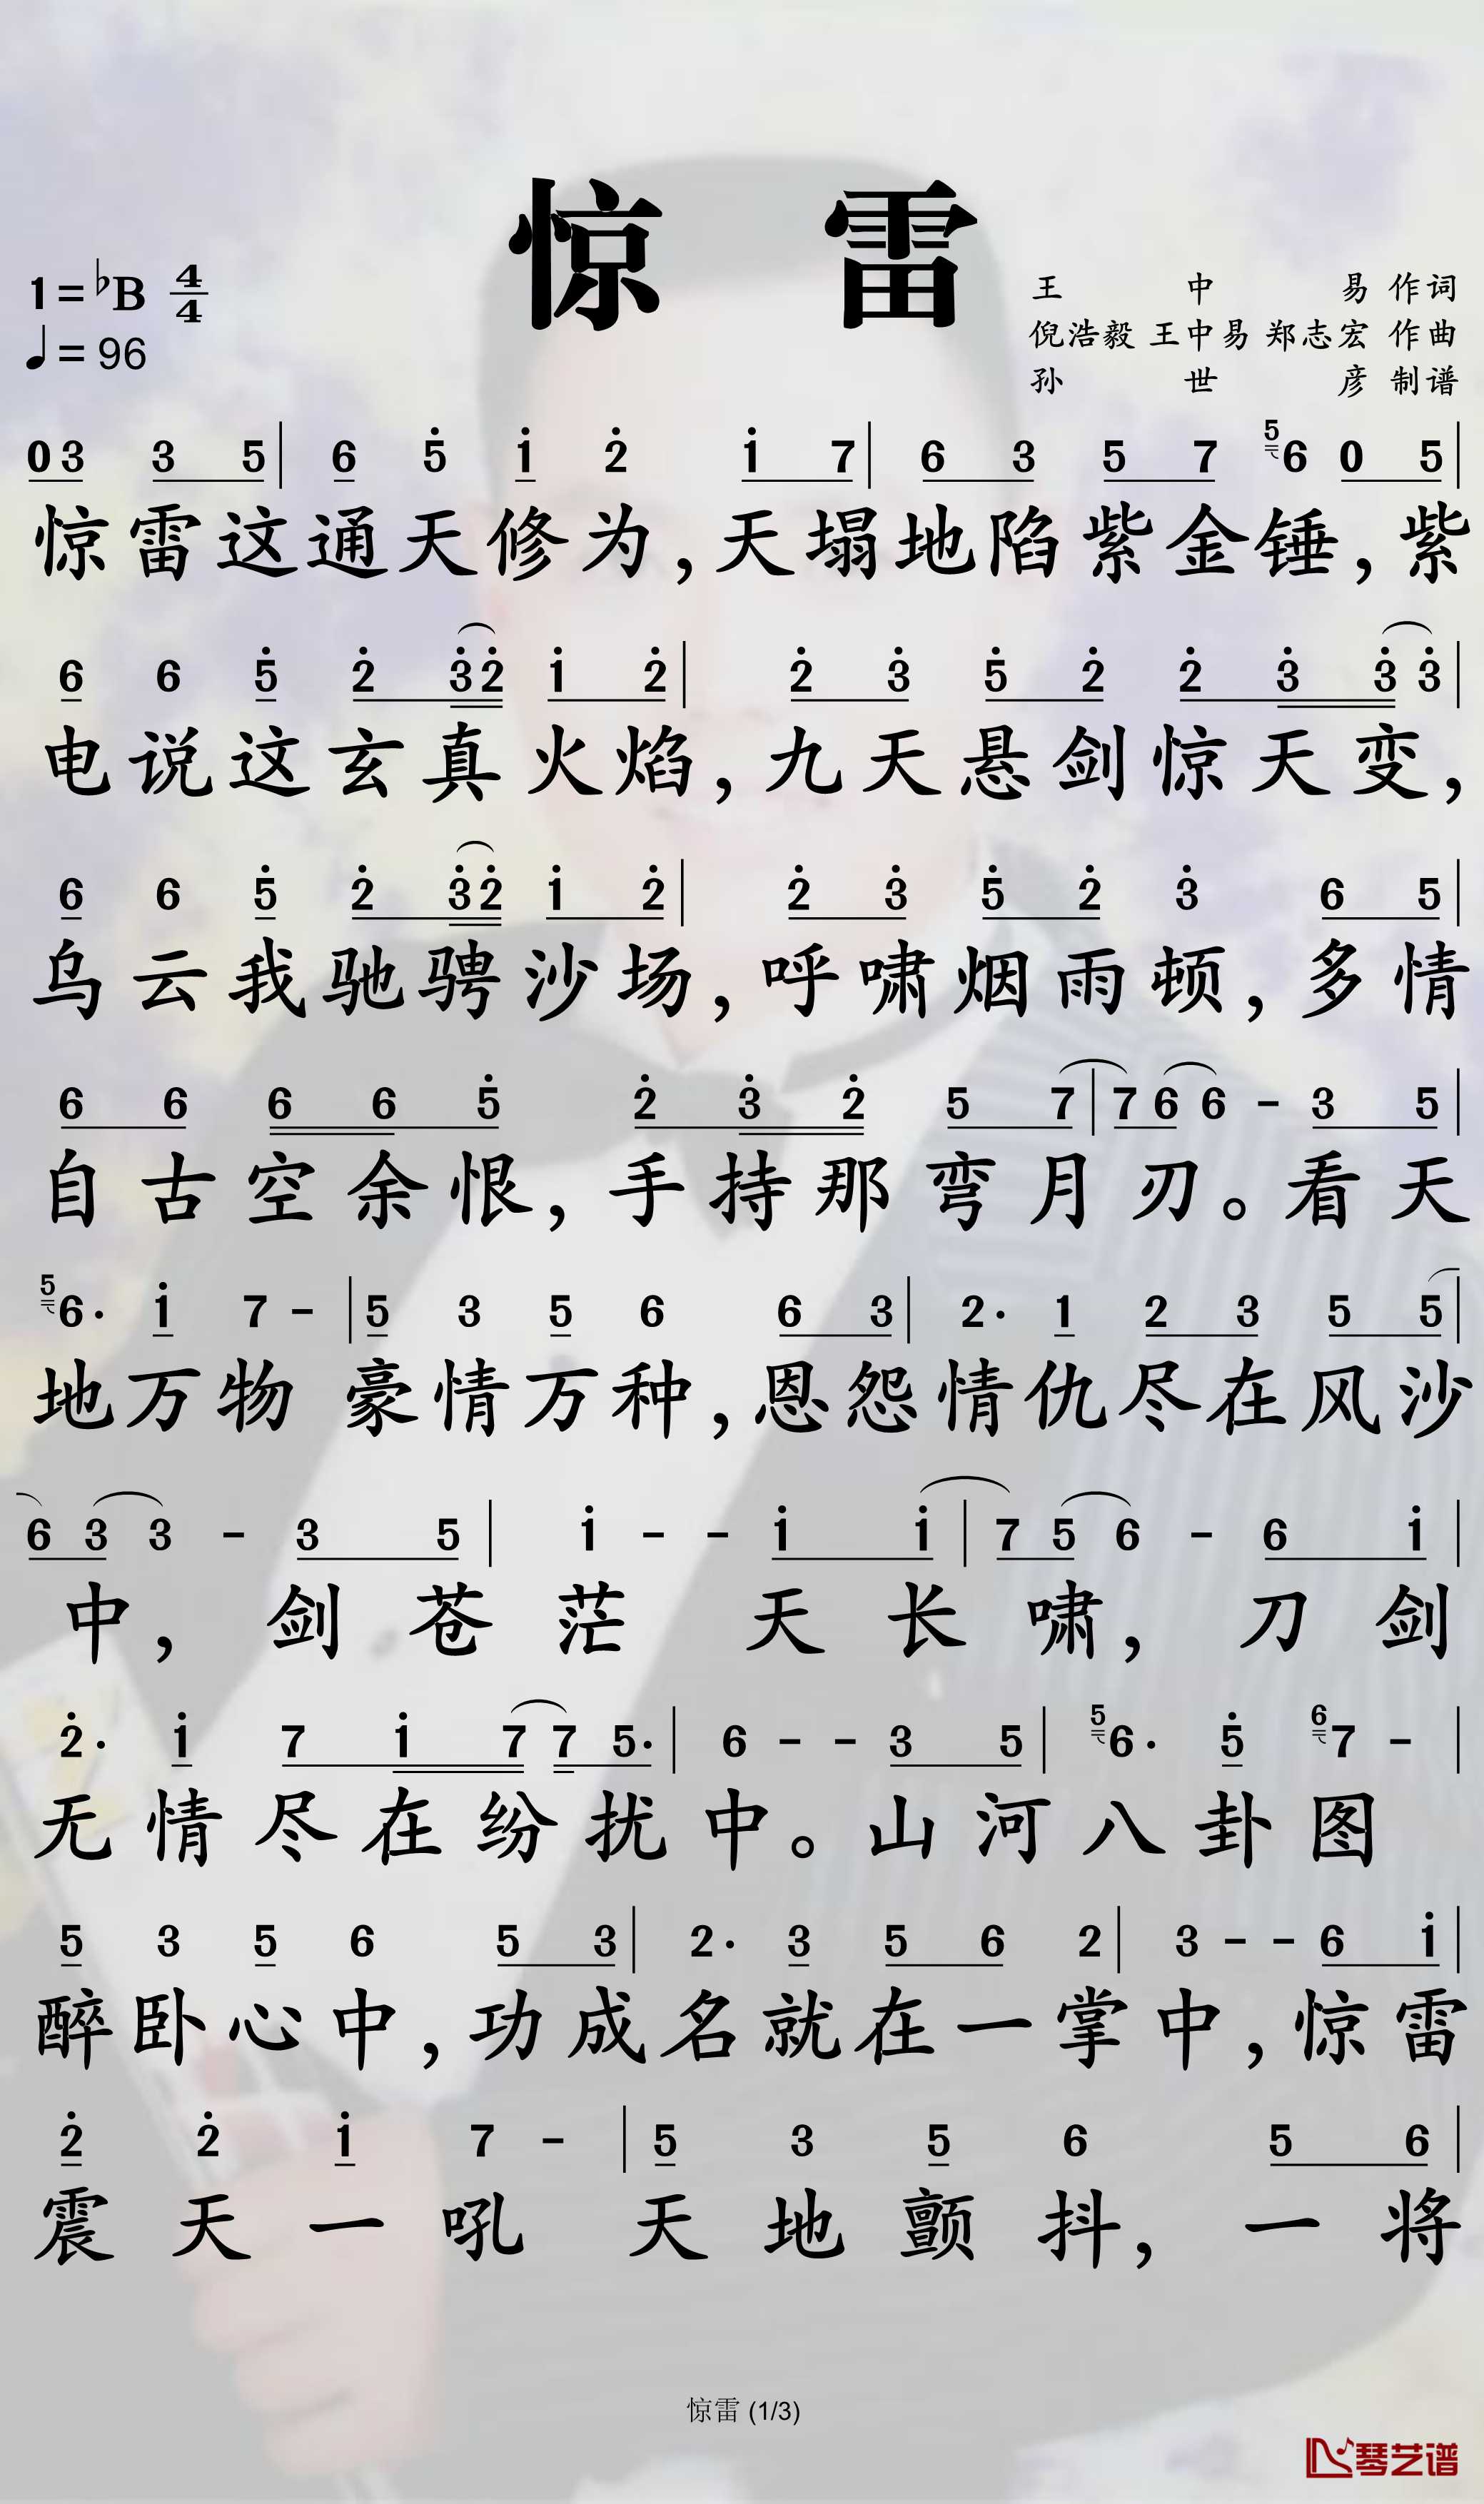 惊 雷
1=♭B 4/4
♩=96
王 中 易 作词
倪浩毅 王中易 郑志宏 作曲
孙 世 彦 制谱
0 3 3 5 | 6 5̇ 1̇ 2̇ 1̇ 7 | 6 3 5 7 ⁵6 0 5 |
惊雷这通天修为,天塌地陷紫金锤,紫
6 6 5̇ 2̇ 3̇ 2̇ 1̇ 2̇ | 2̇ 3̇ 5̇ 2̇ 2̇ 3̇ 3̇ 3̇ |
电说这玄真火焰,九天悬剑惊天变,
6 6 5̇ 2̇ 3̇ 2̇ 1̇ 2̇ | 2̇ 3̇ 5̇ 2̇ 3̇ 6 5 |
乌云我驰骋沙场,呼啸烟雨顿,多情
6 6 6 6 5̇ 2̇ 3̇ 2̇ 5 7 | 7 6 6 - 3 5 |
自古空余恨,手持那弯月刃。看天
⁵6· 1̇ 7 - | 5 3 5 6 6 3 | 2· 1 2 3 5 5 |
地万物 豪情万种,恩怨情仇尽在风沙
6 3 3 - 3 5 | 1̇ - - 1̇ 1̇ | 7 5 6 - 6 1̇ |
中,剑苍茫 天长啸,刀剑
2̇· 1̇ 7 1̇ 7 7 5· | 6 - - 3 5 | ⁵6· 5̇ ⁶7 - |
无情尽在纷扰中。山河八卦图
5 3 5 6 5 3 | 2· 3 5 6 2 | 3 - - 6 1̇ |
醉卧心中,功成名就在一掌中,惊雷
2̇ 2̇ 1̇ 7 - | 5 3 5 6 5 6 |
震天一吼 天地颤抖,一将
惊雷 (1/3)
琴艺谱